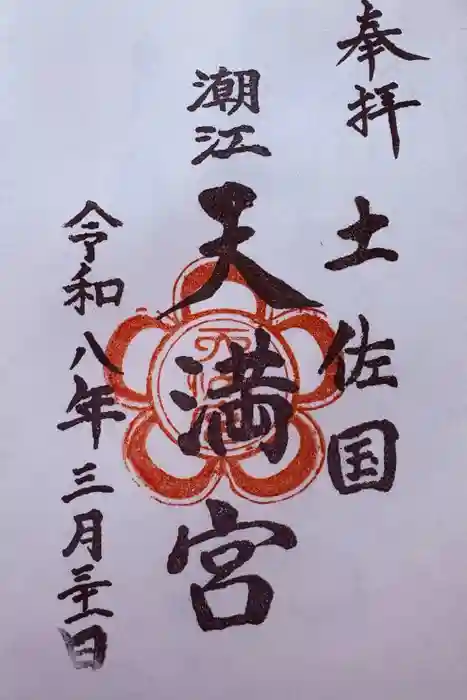 奉拝 土佐国
潮江
天満宮
令和八年三月三十一日